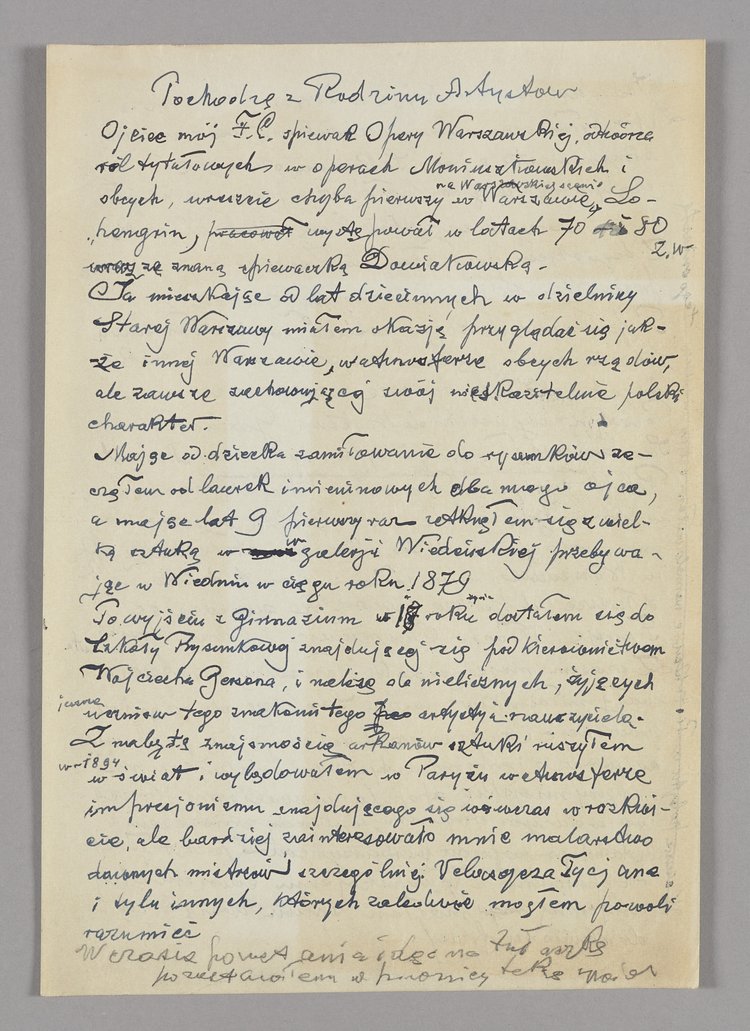 Pochodzę z Rodziny Artystów
Ojciec mój F.C. spiewak Opery Warszawskiej, odtwórca
ról tytułowych w operach Moniuszkowskich i
obcych, wreszcie chyba pierwszy w Warszawie na Warszawskiej scenie „Lo-
hengrin, pracował występował w latach 70 80
wraz ze znaną spiewaczką Dowiakowską. z. w
Ja mieszkając od lat dziecinnych w dzielnicy
Starej Warszawy miałem okazję przyglądać się jak-
że innej Warszawie, w atmosferze obcych rządów,
ale zawsze zachowującej swój nieskazitelnie polski
charakter.
Mając od dziecka zamiłowanie do rysunków za-
cząłem od laurek imieninowych dla mego ojca,
a mając lat 9 pierwszy raz zetknąłem się z wiel-
ką sztuką w w galerji Wiedeńskiej przebywa-
jąc w Wiedniu w ciągu roku 1879
Po wyjściu z Gimnazium w roku dostałem się do
Szkoły Rysunkowej znajdującej się pod kierownictwem
Wojciecha Gersona, i należę do nielicznych, żyjących
jeszcze uczniów tego znakomitego artysty i nauczyciela.
Z małą tą znajomością arkanów sztuki ruszyłem
w 1894 w świat i wylądowałem w Paryżu w atmosferze
impresjonizmu znajdującego się wówczas w rozkwi-
cie, ale bardziej zainteresowało mnie malarstwo
dawnych mistrzów szczególniej Velasqeza Tycjana
i tylu innych, których zaledwie mogłem powoli
rozumieć
W czasie powstania idąc na tułaczkę
pozostawiłem w piwnicy tekę